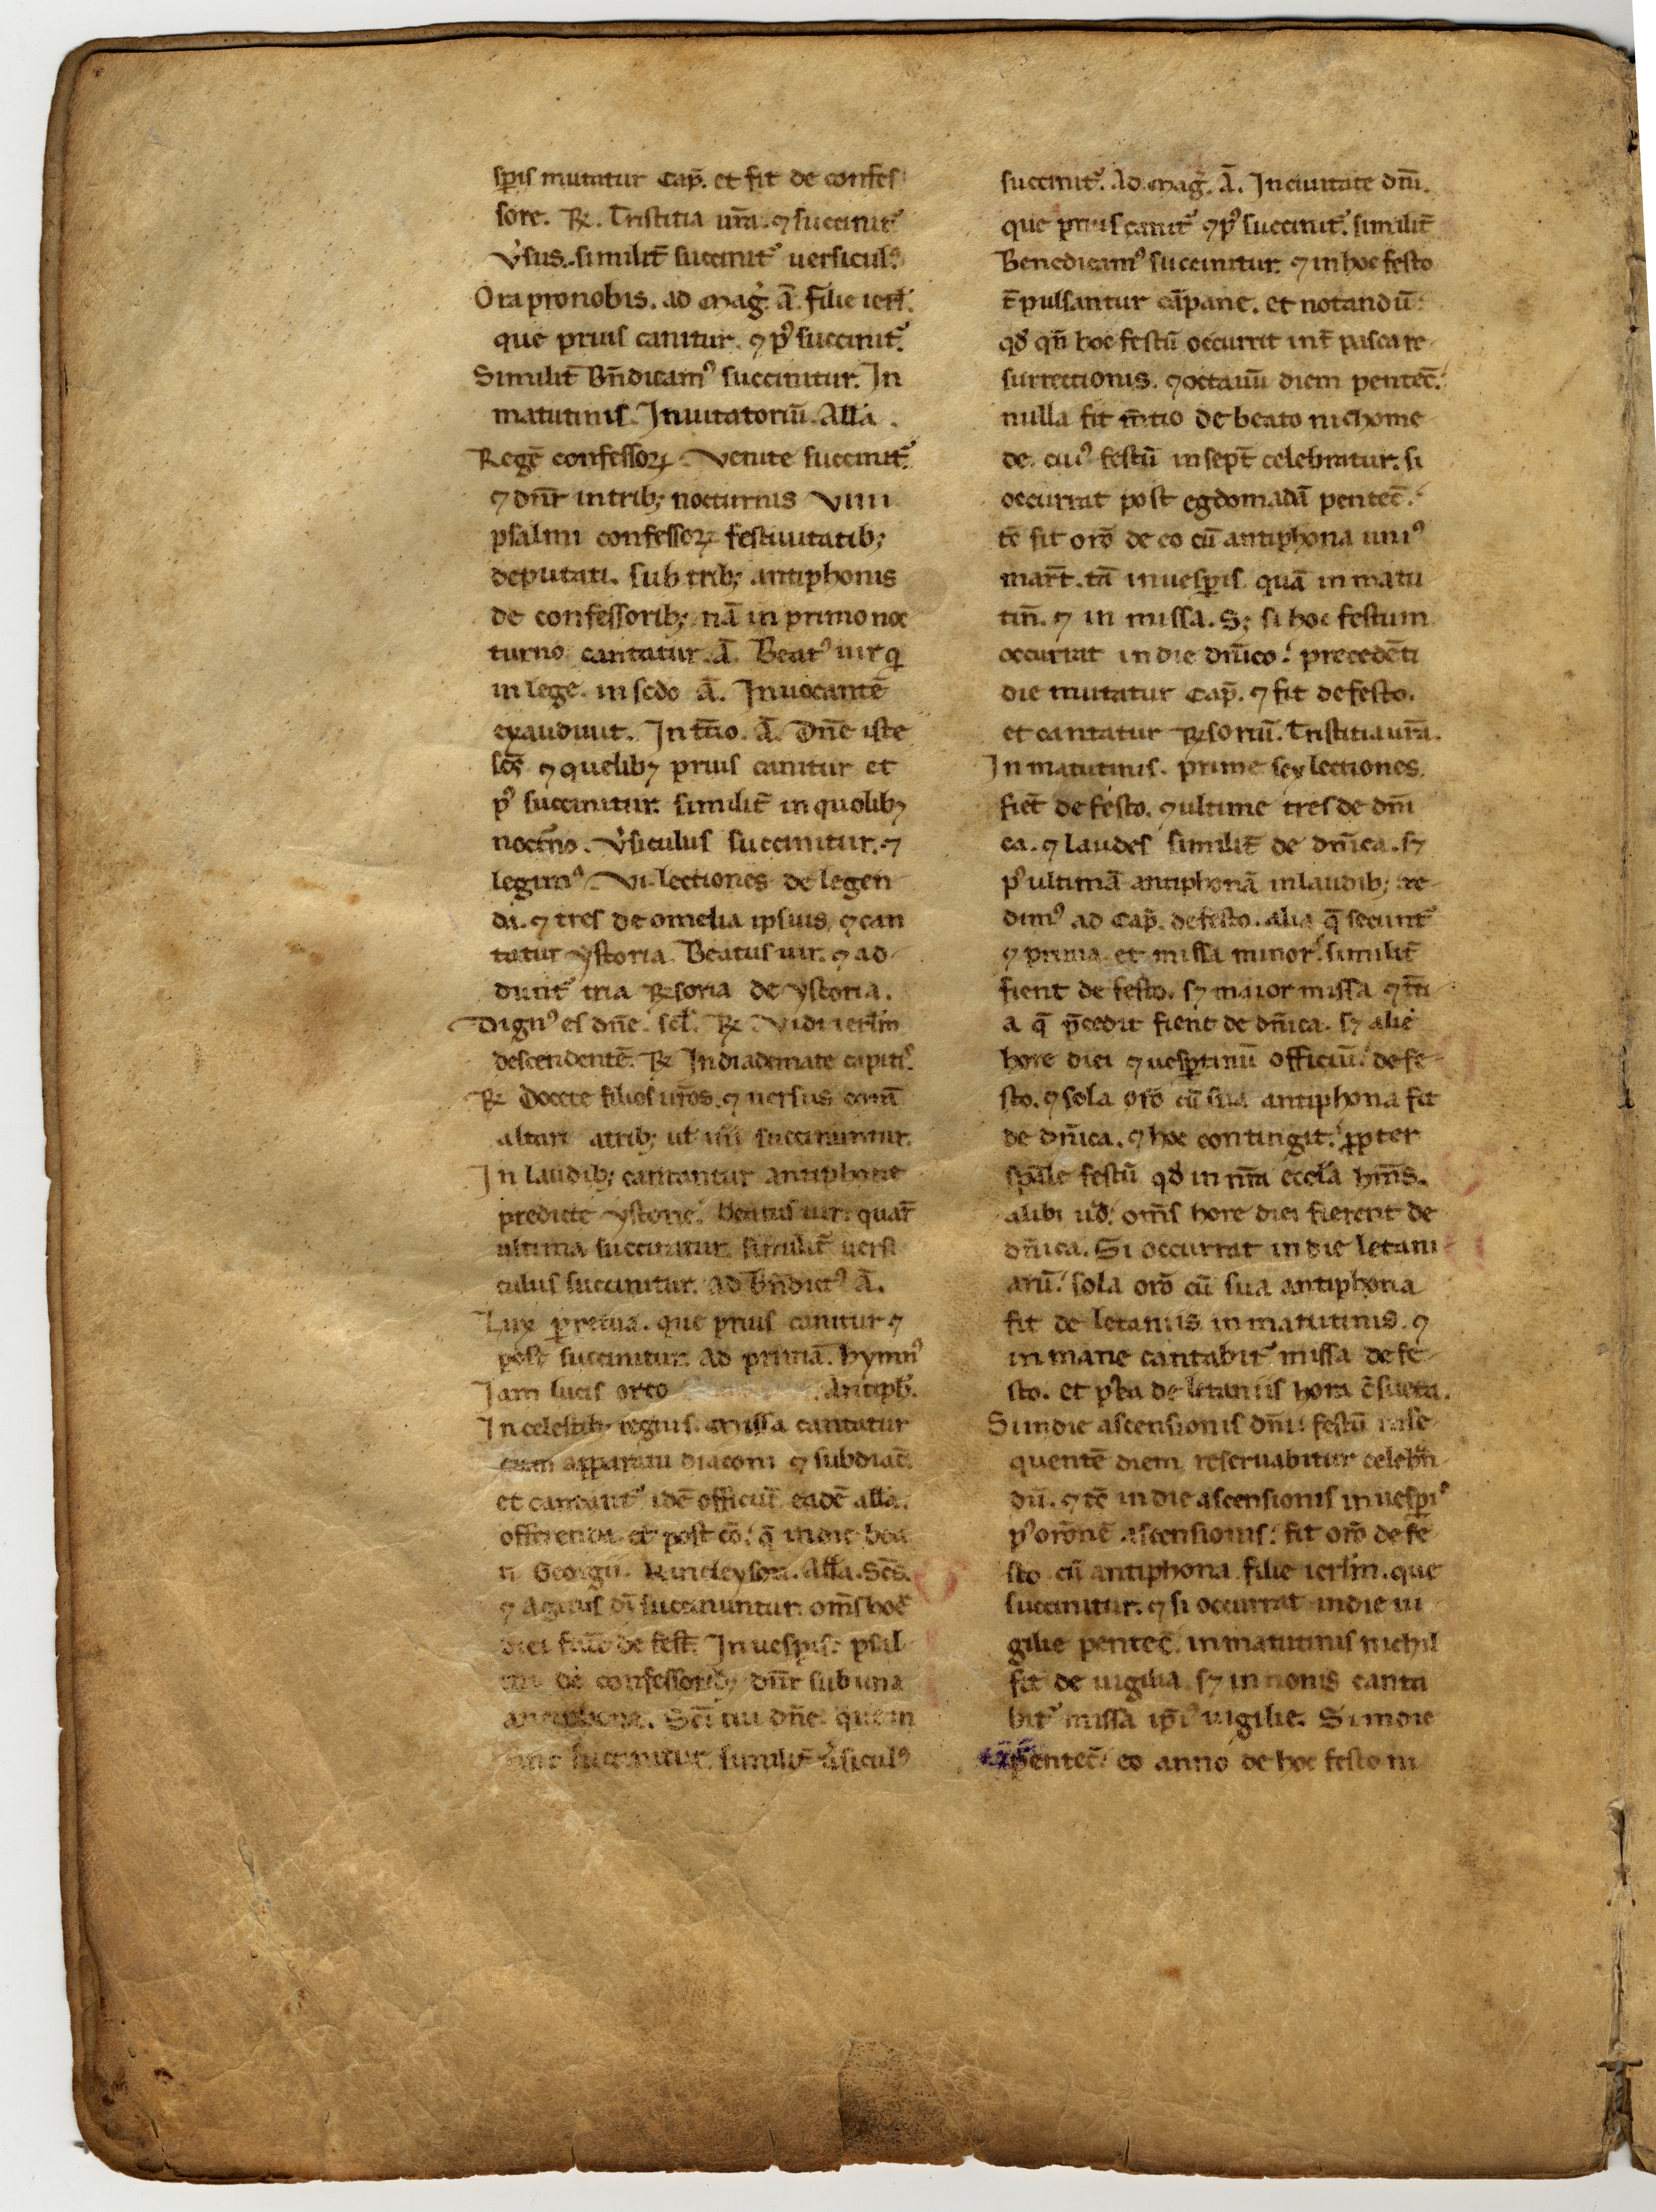 sꝑis mutatur Cap̄. et fit de confes
sore. ℞. Tristitia ur̄a. ⁊ succinit᷑
v̓sus. similit̄ succinit᷑ uersicul᷒.
Ora pro nobis. ad mag̓. a̅. filie ierl̄.
que prius canitur. ⁊ p᷒ succinit᷑.
Similit̄ Bn̄dicam᷒ succinitur. In
matutinis. Inuitatoriū. All̄a.
Regē confessoꝝ. Venite succinit᷑.
⁊ dn̄r in trib; nocturnis viiii
psalmi confessoꝝ festiuitatib;
deputati. sub trib; antiphonis
de confessorib; nā in primo noc
turno cantatur. a̅. Beat᷒ uir q
in lege. in scdo a̅. Inuocantē
exaudiuit. In tc̄io. a̅. Dn̄e iste
sc̄s ⁊ quelibꝫ prius canitur et
p᷒ succinitur. similit̄ in quolibꝫ
noct̄no. v̓siculus succinitur. ⁊
legim᷒ vi. lectiones de legen
da. ⁊ tres de omelia ipsius, ⁊ can
tatur ystoria. Beatus uir. ⁊ ad
dunt᷑ tria ℞soria de ystoria.
Dign᷒ es dn̄e. scl̄. ℞ Vidi ierl̄m
descendentē. ℞ In diademate capit᷒.
℞ Docete filios ur̄os. ⁊ uersus coram̄
altari a trib; ul̄ iiii succinuntur.
In laudib; cantantur antiphone
predicte ystorie. Beatus uir. quar̄
ultima succinitur. similit̄ uersi
culus succinitur. ad bn̄dict᷒ a̅.
Lux ꝑpetua. que prius canitur ⁊
post succinitur. Ad primā. hymn᷒
Iam lucis orto Antiph̄.
In celestib; regnis. missa cantatur
cum apparatu diaconi ⁊ subdiac̄.
et cantant᷑ idē officiū. eadē all̄a.
offerenda. et post cō. q̄ in die bea
ti Georgii. Kirieleyson. All̄a. Sc̄s.
⁊ agnus dī succinuntur. om̄s hoē
diei fiūt de fest̄. In uesꝑis. psal
mi de confessorib; dn̄r sub una
antiphona. Sc̄i tui dn̄e. quem
succinitur. similit̄ v̓sicul᷒
succinit᷑. Ad mag̓. a̅. In ciuitate dn̄i.
que prius canit᷑ ⁊ p᷒ succinit᷑. similit̄
Benedicam᷒ succinitur. ⁊ in hoc festo
t̄ pulsantur cāpane. et notandū.
qd̓ qn̄ hoc festū occurrit int̄ pasca re
surrectionis. ⁊ octauū diem pentec̄.
nulla fit m̄tio de beato nichome
de. cui᷒ festū in sept̄ celebratur. si
occurrat post egdomadā pentec̄.
tc̄ fit orō de eo cū antiphona uni᷒
mart̄. tā in uesꝑis. quā in matu
tin̄. ⁊ in missa. S; si hoc festum
occurrat in die dn̄ico. precedēti
die mutatur Cap̄. ⁊ fit de festo.
et cantatur ℞soriū. Tristitia ur̄a.
In matutinis. prime sex lectiones
fiēt de festo. ⁊ ultime tres de dn̄i
ca. ⁊ laudes similit̄ de dn̄ica. sꝫ
p᷒ ultimā antiphonā in laudib; re
dim᷒ ad Cap̄. de festo. alia q̄ secunt᷑
⁊ prima. et missa minor. similit̄
fient de festo. sꝫ maior missa ⁊ tc̄i
a q̄ p̄cedit fient de dn̄ica. sꝫ alie
hore diei ⁊ uesꝑtinū officiū. de fe
sto. ⁊ sola orō cū sua antiphona fit
de dn̄ica. ⁊ hoc contingit. ꝓpter
sp̄ale festū qd̓ in nr̄a eccl̓a hm̄s.
alibi u̓o. om̄s hore diei fierent de
dn̄ica. Si occurrat in die letani
arū. sola orō cū sua antiphona
fit de letaniis in matutinis. ⁊
in mane cantabit᷑ missa de fe
sto. et pꝰea de letaniis hora c̄sueta.
Si in die ascensionis dn̄i. festū in se
quentē diem reseruabitur celebn̄
dū. ⁊ tc̄ in die ascensionis in uesꝑi᷒
p᷒ orōnē ascensionis. fit orō de fe
sto cū antiphona filie ierl̄m. que
succinitur. ⁊ si occurrat in die ui
gilie pentec̄. in matutinis nichil
fit de uigilia. sꝫ in nonis canta
bit᷑ missa ip̄i᷒ uigilie. Si in die
pentec̄. eo anno de hoc festo ni